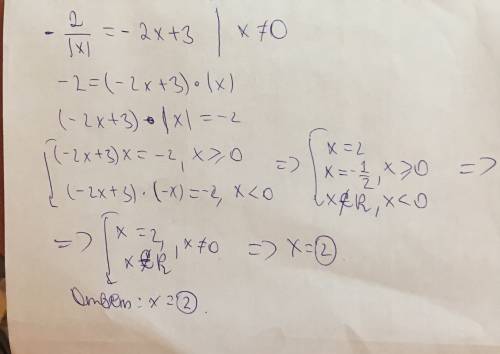 -2/|x| = -2x+3 | x≠0
-2=(-2x+3)·(x)
(-2x+3)·|x|=-2
[(-2x+3)x=-2, x≥0 => [x=2
(-2x+3)·(-x)=-2, x<0 x=-1/2, x≥0 =>
x∉R, x<0
=> [x=2, x≠0 => x=②
x∉R
Ответ: x=②.